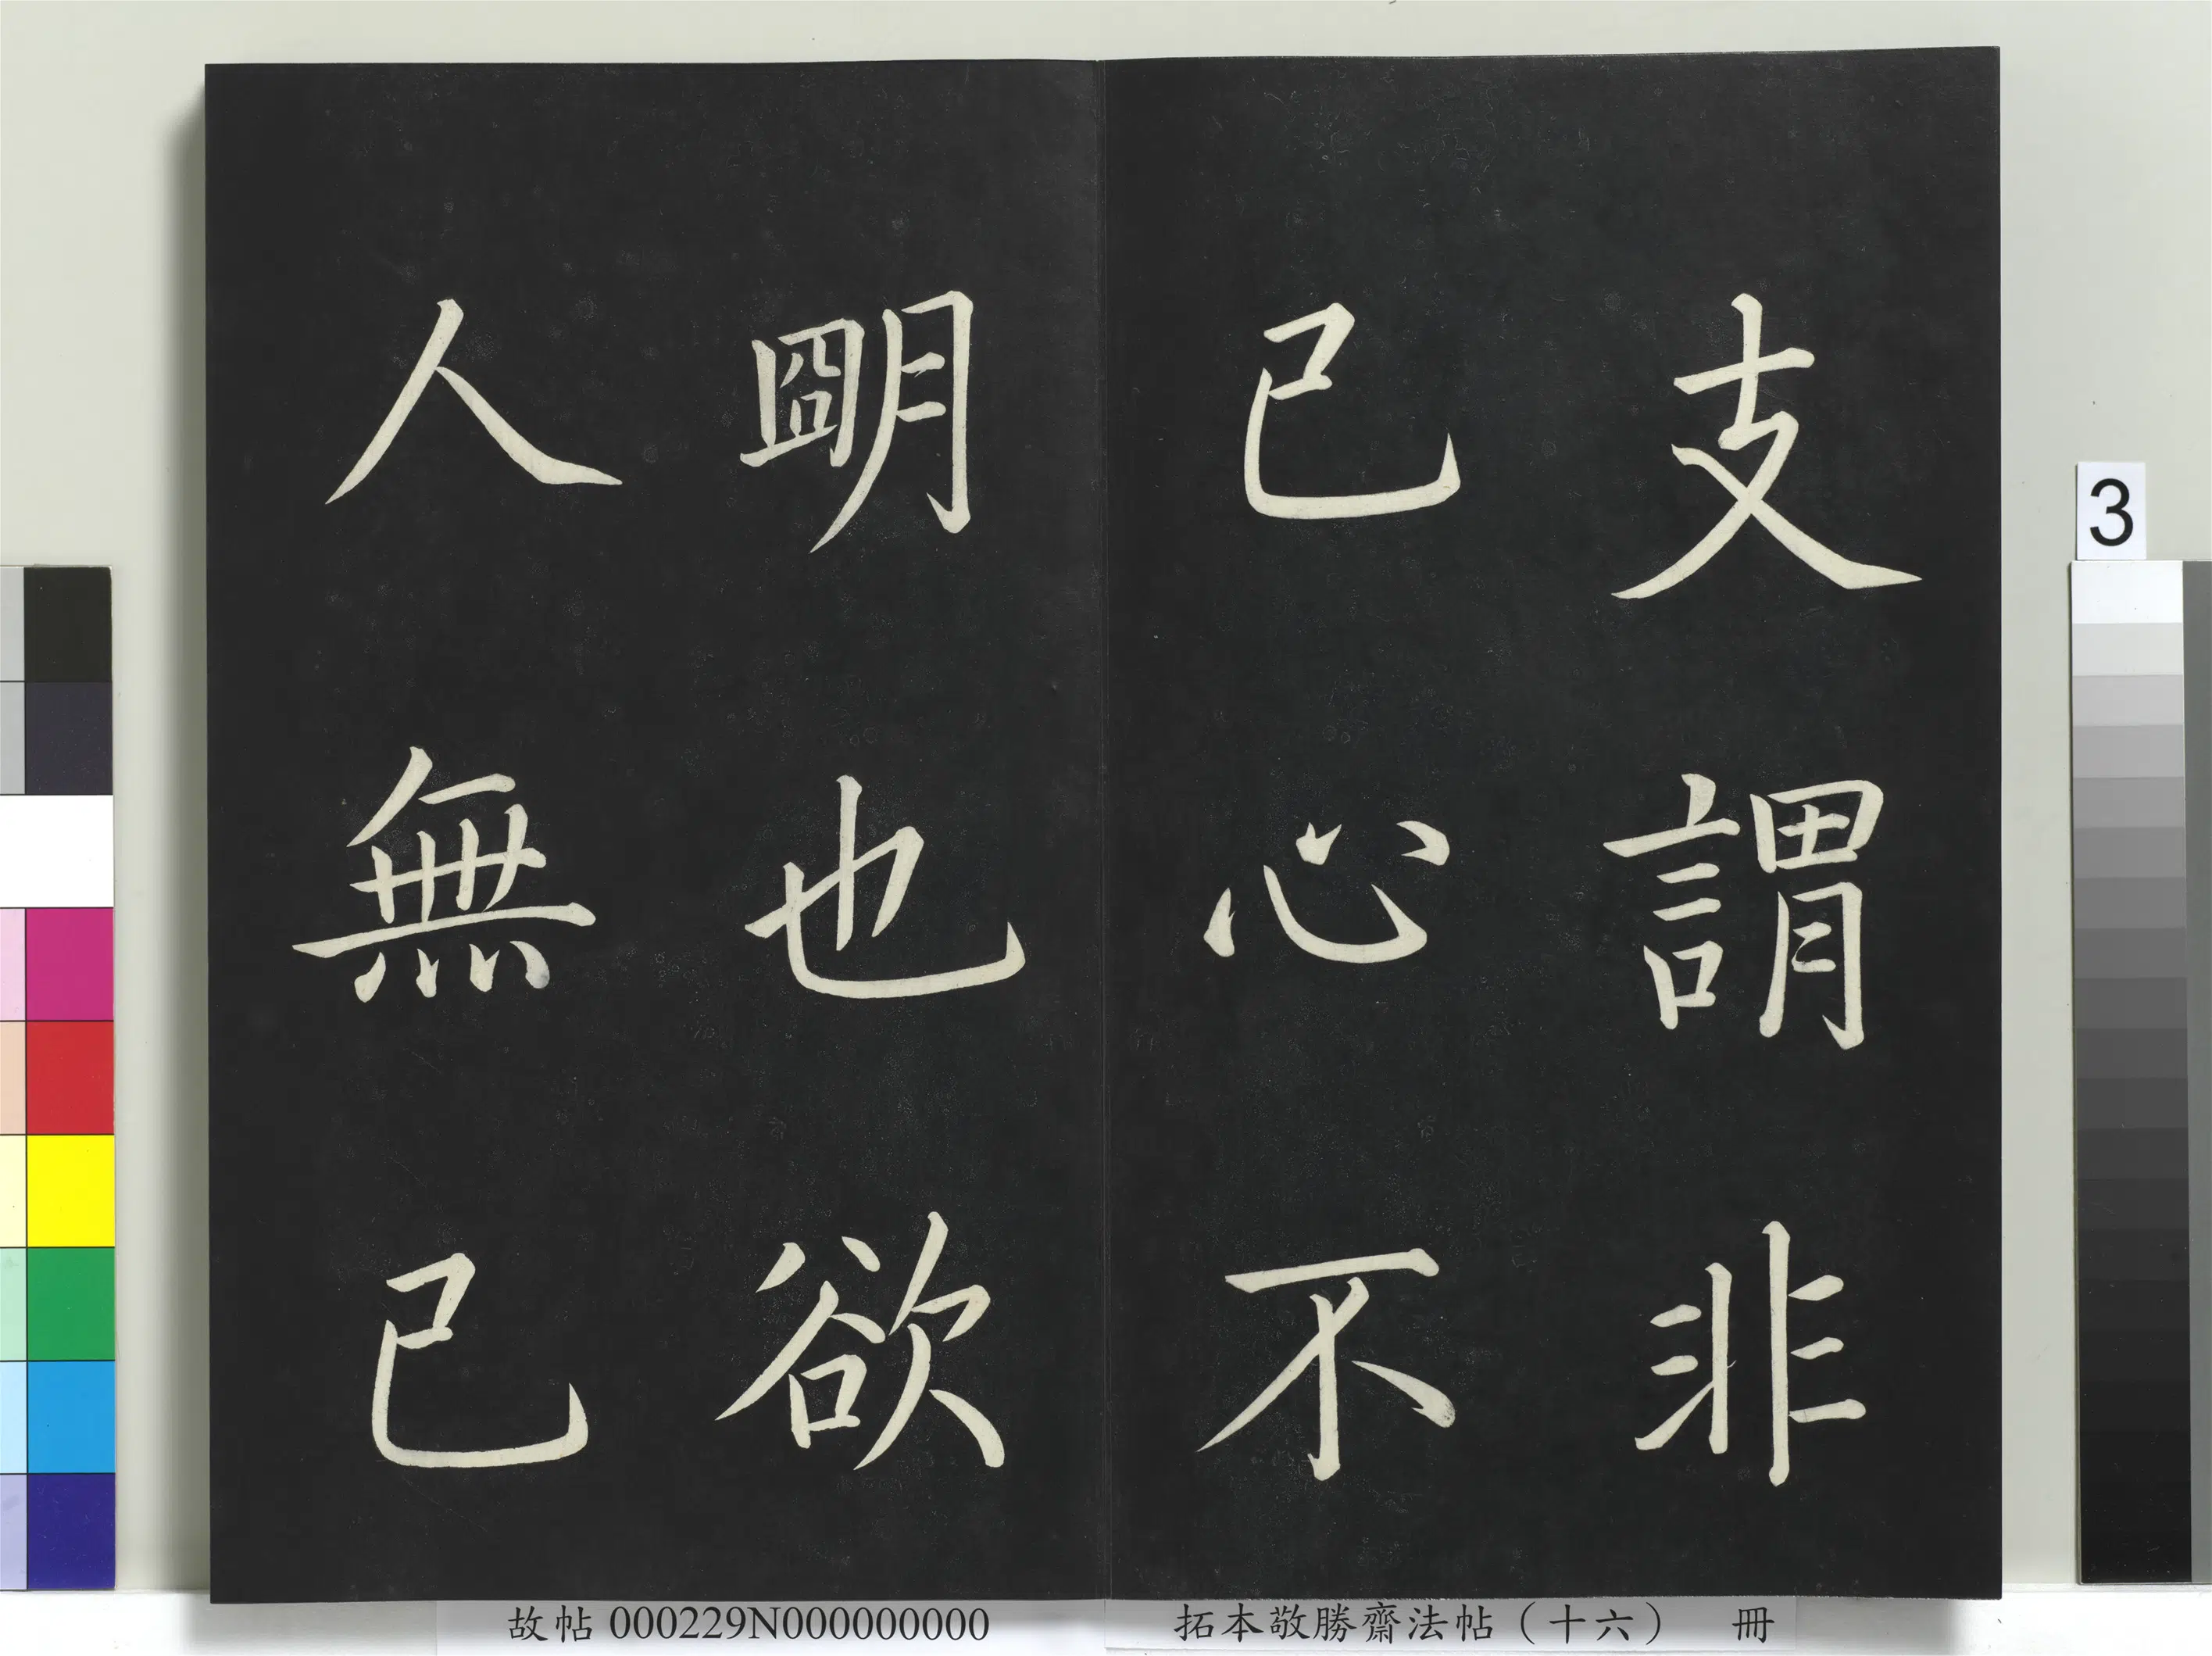 支謂非
己心不
朙也欲
人無己
3
故帖 000229N000000000
拓本敬勝齋法帖（十六） 冊